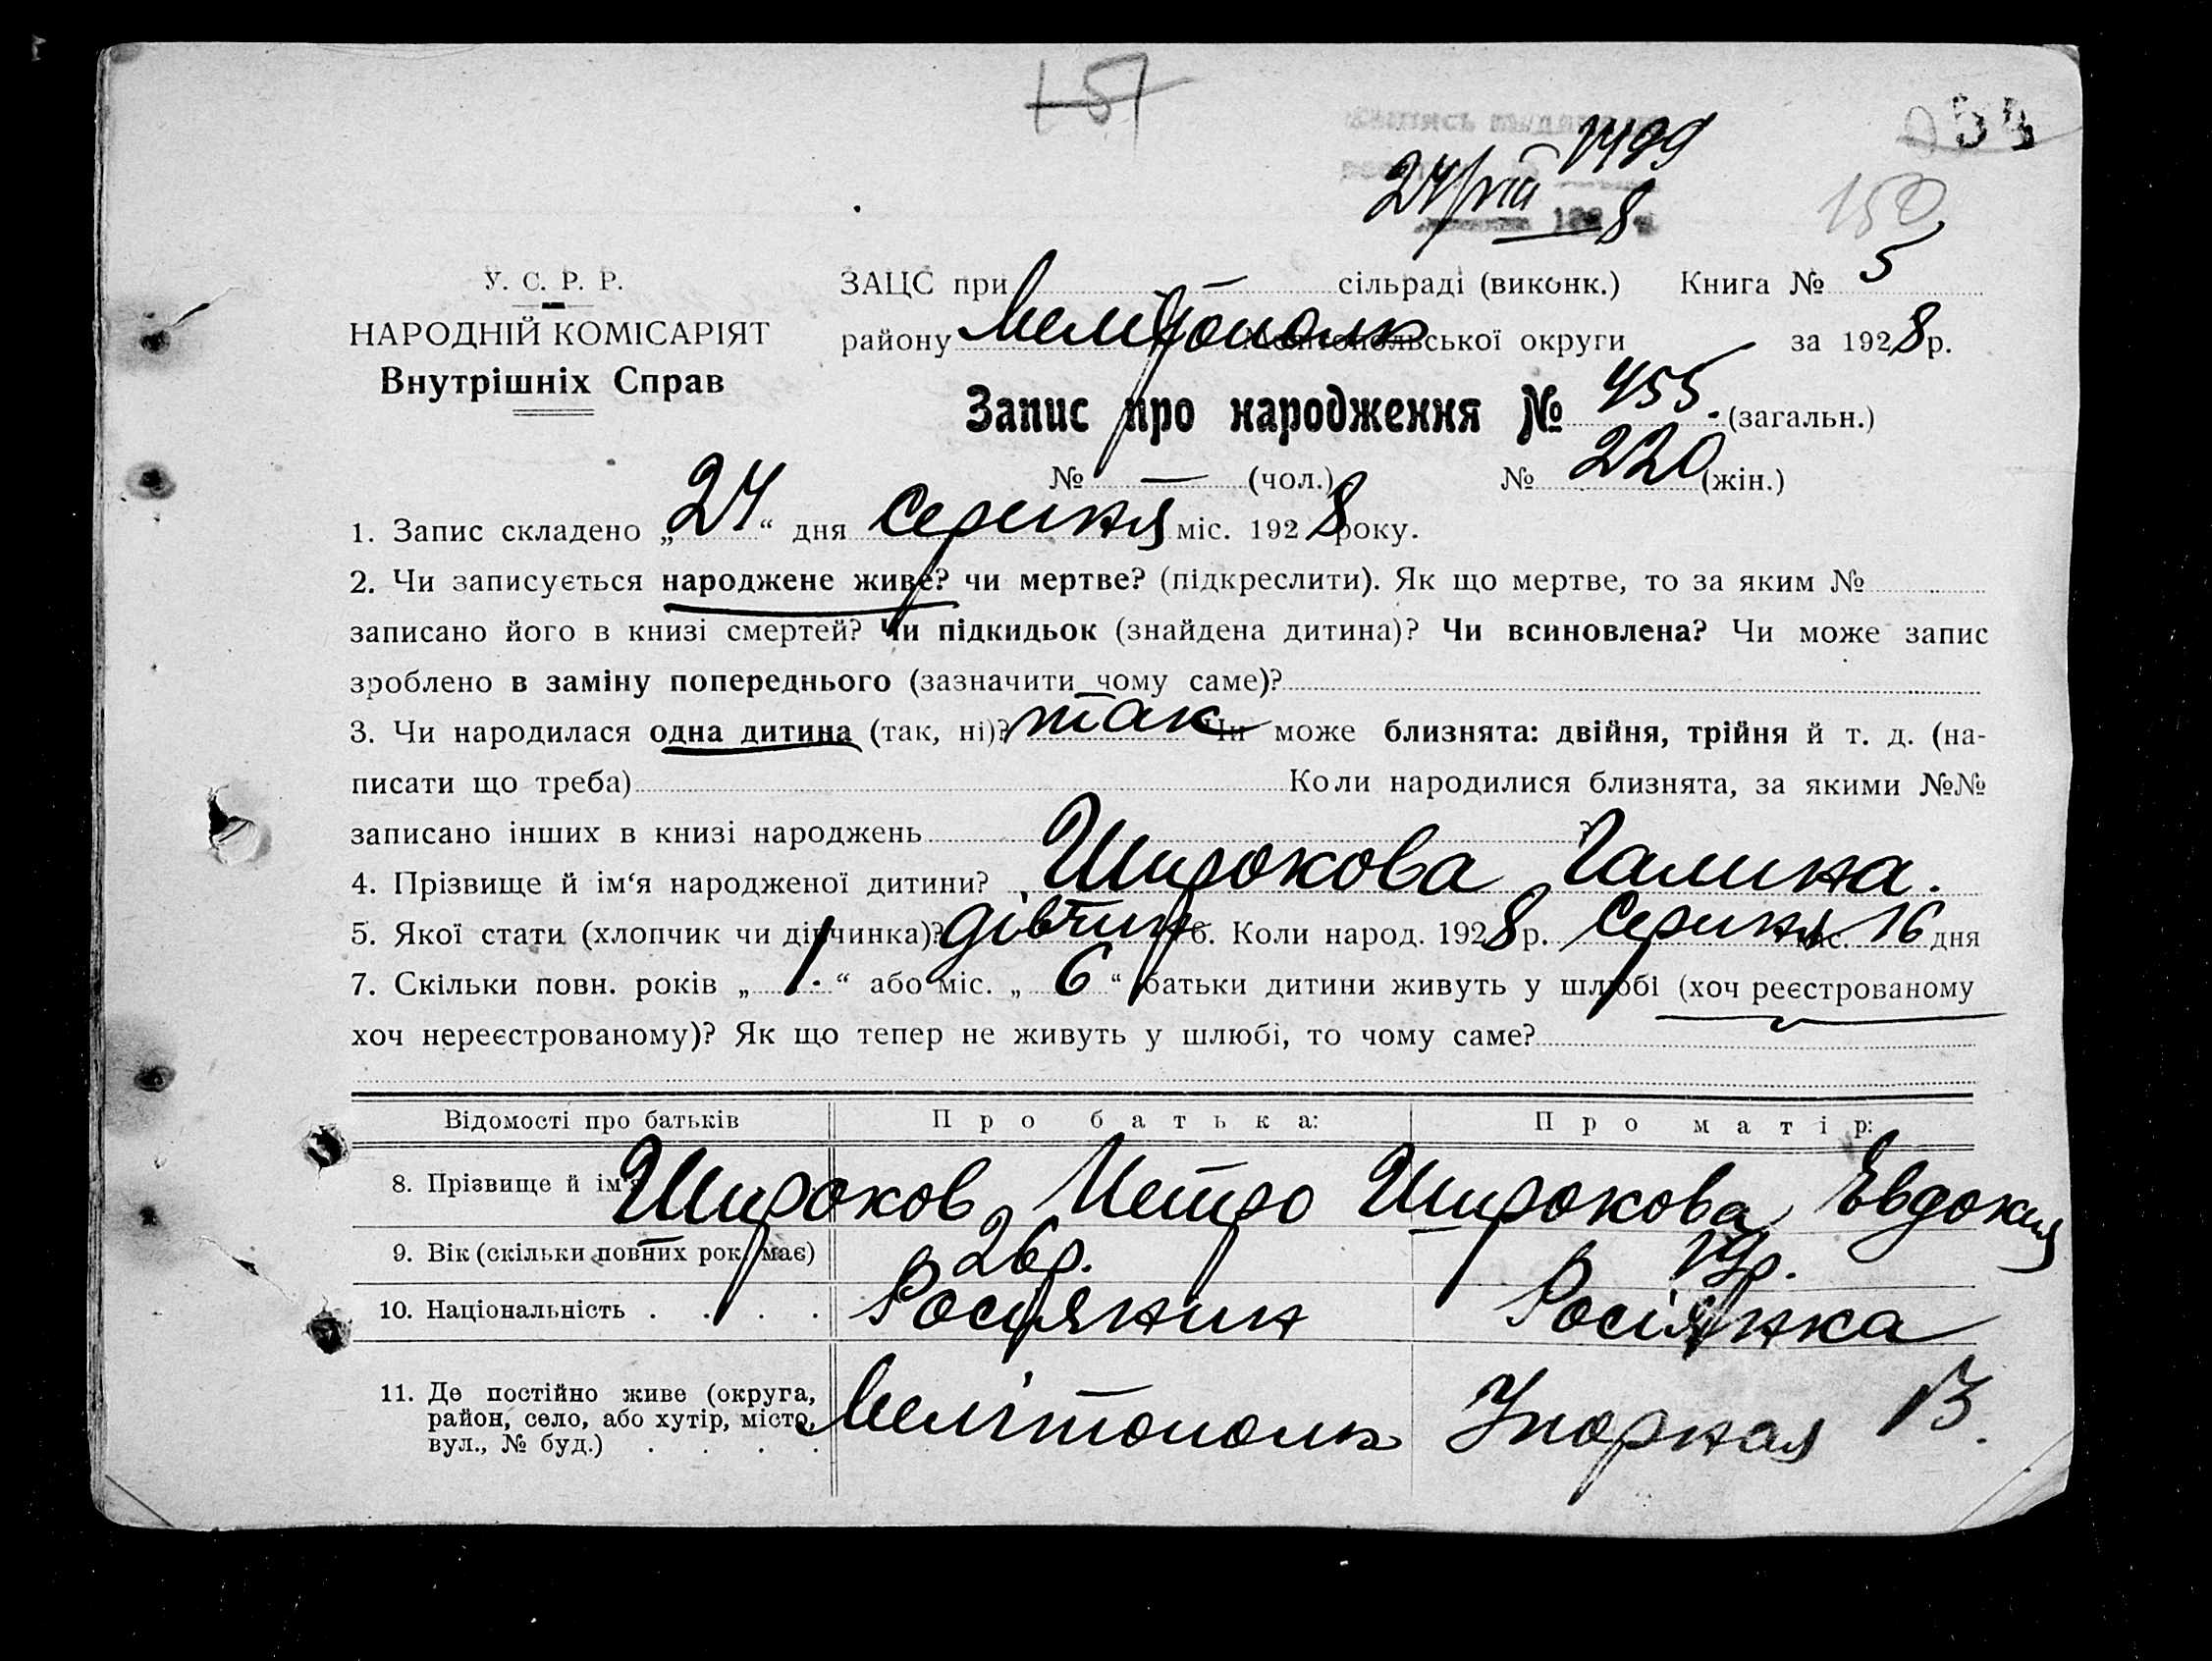 157
1499
24/VIII
8
150
У. С. Р. Р.
НАРОДНІЙ КОМІСАРІЯТ
Внутрішніх Справ
ЗАЦС при сільраді (виконк.) Книга № 5
району Мелітополь Мелітопольської округи за 1928 р.
Запис про народження № 455. (загальн.)
№ — (чол.) № 220 (жін.)
1. Запис складено „24“ дня серпня міс. 1928 року.
2. Чи записується народжене живе? чи мертве? (підкреслити). Як що мертве, то за яким №
записано його в книзі смертей? Чи підкидьок (знайдена дитина)? Чи всиновлена? Чи може запис
зроблено в заміну попереднього (зазначити чому саме)?
3. Чи народилася одна дитина (так, ні)? так Чи може близнята: двійня, трійня й т. д. (на-
писати що треба) Коли народилися близнята, за якими №№
записано інших в книзі народжень ?
4. Прізвище й ім‘я народженої дитини? Широкова Галина.
5. Якої стати (хлопчик чи дівчинка)? дівчин 6. Коли народ. 1928 р. серпня міс. 16 дня
7. Скільки повн. років „1.“ або міс. „6“ батьки дитини живуть у шлюбі (хоч реєстрованому
хоч нереєстрованому)? Як що тепер не живуть у шлюбі, то чому саме?
Відомості про батьків Про батька: Про матір:
8. Прізвище й ім‘я Широков Петро Широкова Евдокия
9. Вік (скільки повних рок. має) 26 р. 19 р.
10. Національність . . . . Росіянин Росіянка
11. Де постійно живе (округа,
район, село, або хутір, місто,
вул., № буд.) . . . . Мелітополь 13.